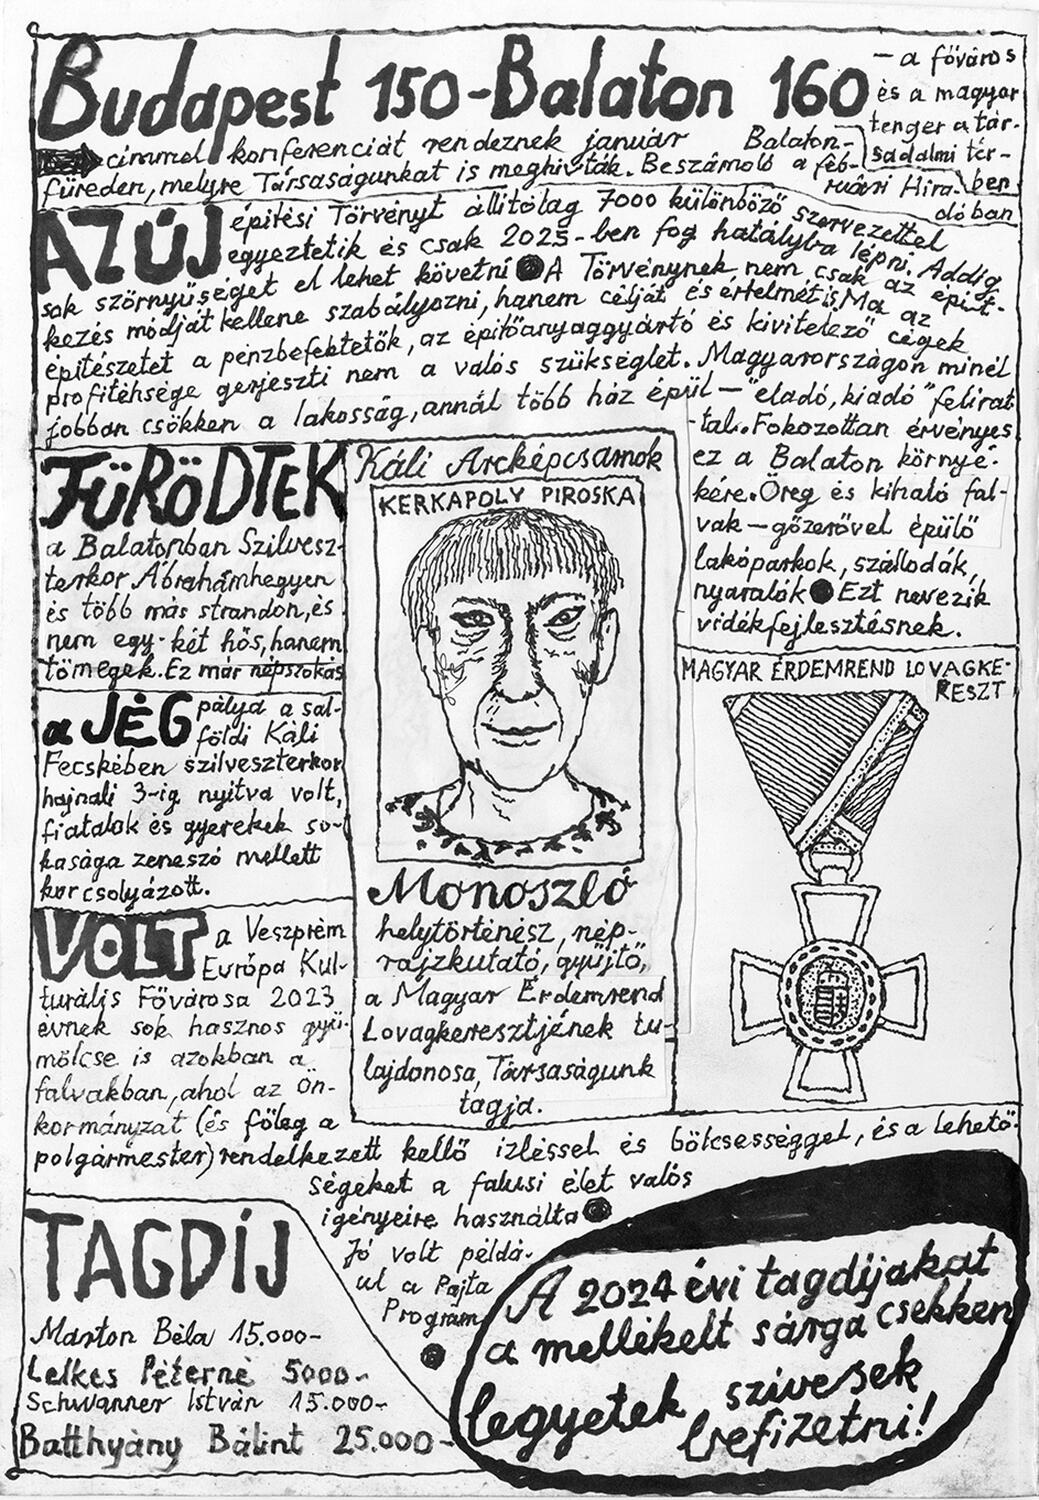 Budapest 150-Balaton 160
— a főváros
és a magyar
tenger a tár-
sadalmi tér-
ben
címmel konferenciát rendeznek január Balaton-
füreden, melyre Társaságunkat is meghívták. Beszámoló a feb-
ruári Hira-
dóban
AZ ÚJ építési Törvényt állítólag 7000 különböző szervezettel
egyeztetik és csak 2025-ben fog hatályba lépni. Addig
sok szörnyűséget el lehet követni ● A Törvénynek nem csak az épít-
kezés módját kellene szabályozni, hanem célját és értelmét is. Ma az
építészetet a pénzbefektetők, az építőanyaggyártó és kivitelező cégek
profitéhsége gerjeszti nem a valós szükséglet. Magyarországon minél
jobban csökken a lakosság, annál több ház épül — "eladó, kiadó" felirat-
-tal. Fokozottan érvényes
ez a Balaton környé-
kére. Öreg és kihaló fal-
vak — gőzerővel épülő
lakóparkok, szállodák,
nyaralók ● Ezt nevezik
vidékfejlesztésnek.
FÜRÖDTEK
a Balatonban Szilvesz-
terkor Ábrahámhegyen
és több más strandon, és
nem egy-két hős, hanem
tömegek. Ez már népszokás
a JÉG pálya a sal-
földi Káli
Fecskében szilveszterkor
hajnali 3-ig nyitva volt,
fiatalok és gyerekek so-
kasága zeneszó mellett
korcsolyázott.
Káli Arcképcsarnok
KERKAPOLY PIROSKA
Monoszló
helytörténész, nép-
rajzkutató, gyűjtő,
a Magyar Érdemrend
Lovagkeresztjének tu-
lajdonosa, Társaságunk
tagja.
MAGYAR ÉRDEMREND LOVAGKE-
RESZT
VOLT a Veszprém
Európa Kul-
turális Fővárosa 2023
évnek sok hasznos gyü-
mölcse is azokban a
falvakban, ahol az ön-
kormányzat (és főleg a
polgármester) rendelkezett kellő ízléssel és bölcsességgel, és a lehető-
ségeket a falusi élet valós
igényeire használta ●
Jó volt példá-
ul a Pajta
Program
●
TAGDÍJ
Marton Béla 15.000-
Lelkes Péterné 5000-
Schwanner István 15.000-
Batthyány Bálint 25.000-
A 2024 évi tagdíjakat
a mellékelt sárga csekken
legyetek szívesek
befizetni!